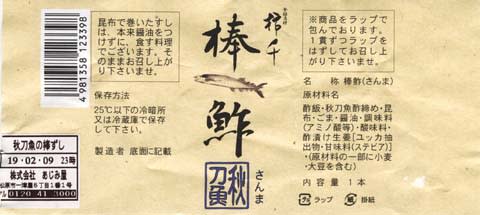 昆布で巻いたずし
は、本来醤油をつ
けずに、食す料理
でございます。そ
のままお召し上が
り下さいませ。
4981358 123398
保存方法
25℃以下の冷暗所
又は冷蔵庫で保存
して下さい。
製造者 底面に記載
秋刀魚の棒ずし
19・02・09 23時
株式会社 あじみ屋
松原市一津屋6丁目1番1号
0120 41 3000
棒鮓
さんま
秋刀魚
※商品をラップで
包んでおります。
1貫ずつラップを
はずしてお召し上
がり下さいませ。
名 称 棒鮓(さんま)
原材料名
酢飯・秋刀魚酢締め・昆
布・ごま・醤油・調味料
(アミノ酸等)・酸味料・
酢漬け生姜[ユッカ抽
出物・甘味料(ステビア)]
・(原材料の一部に小麦
・大豆を含む)
内容量 1本
プラ ラップ 紙 掛紙